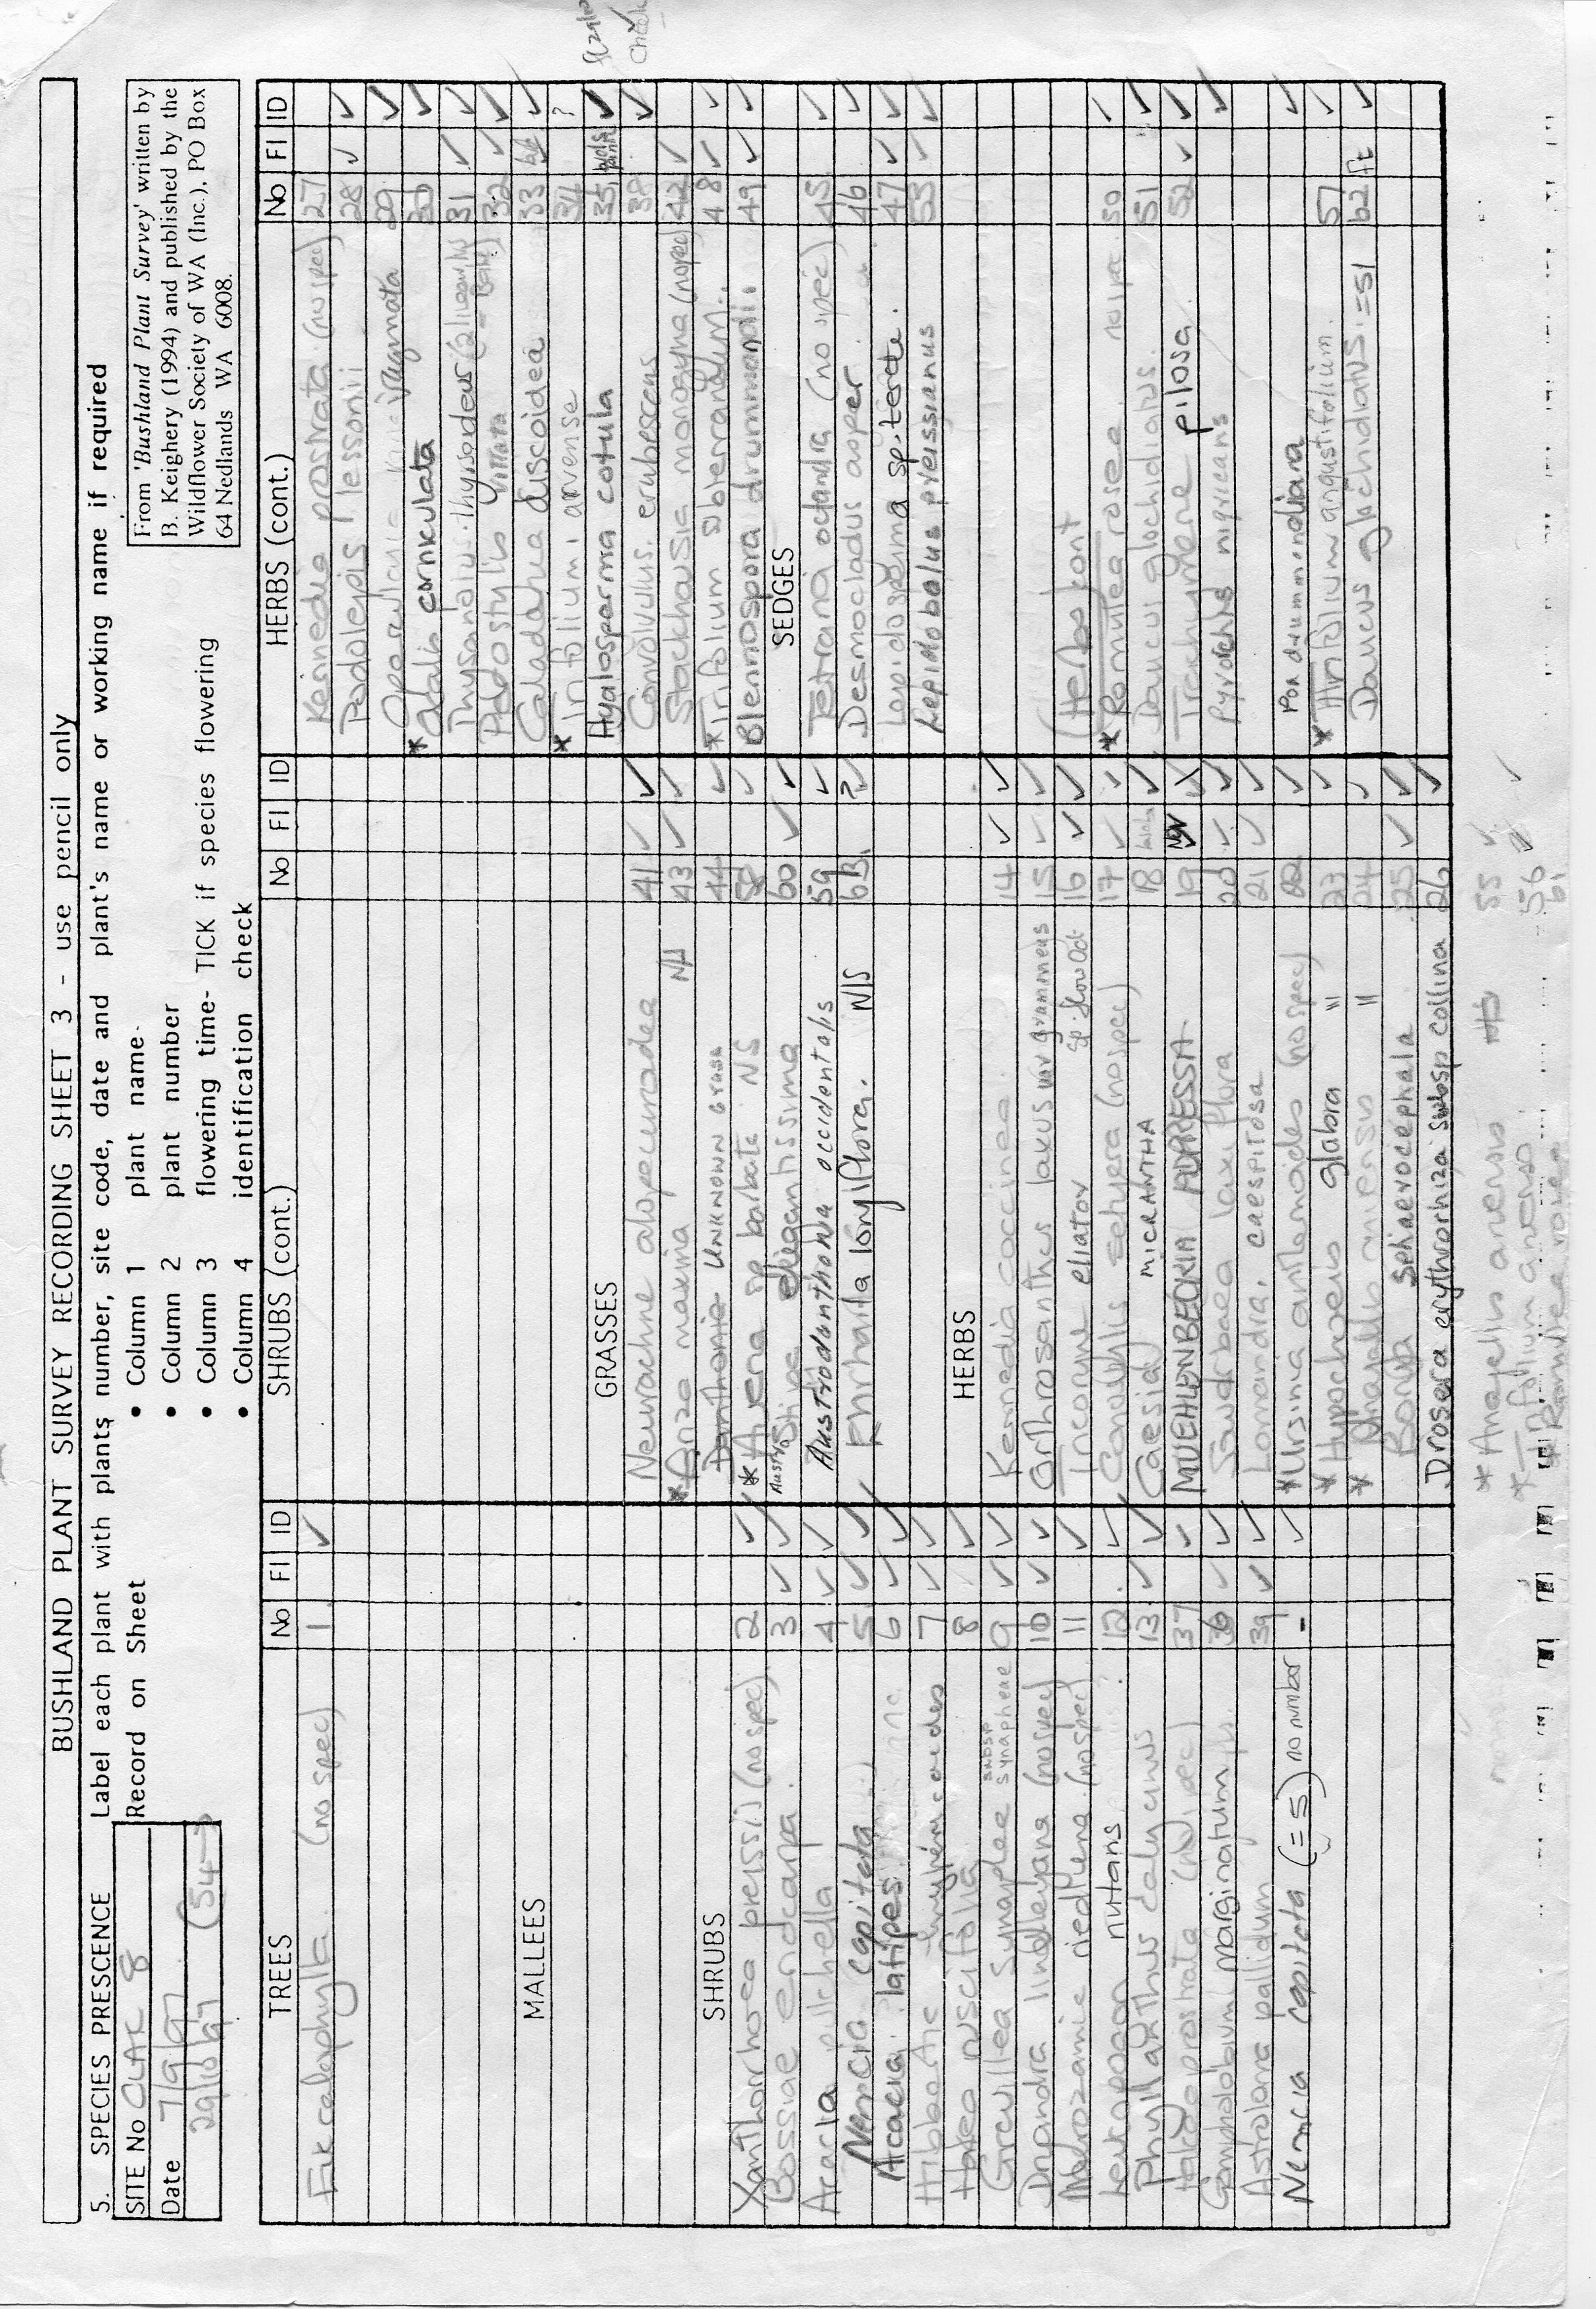 BUSHLAND PLANT SURVEY RECORDING SHEET 3 - use pencil only
5. SPECIES PRESCENCE
Label each plant with plants number, site code, date and plant's name or working name if required
SITE No CLAK 8
Date 7/9/97
29/10/97 (54→)
Record on Sheet
• Column 1 plant name
• Column 2 plant number
• Column 3 flowering time- TICK if species flowering
• Column 4 identification check
From 'Bushland Plant Survey' written by
B. Keighery (1994) and published by the
Wildflower Society of WA (Inc.), PO Box
64 Nedlands WA 6008.
TREES No Fl ID
Euc calophylla (no spec) 1 ✓
MALLEES
SHRUBS
Xanthorrhoea preissii (no spec) 2 ✓
Bossiae eriocarpa 3 ✓ ✓
Acacia pulchella 4 ✓ ✓
Nemcia capitata 5 ✓ ✓
Acacia latipes 6 ✓ ✓
Hibbertia hypericoides 7 ✓ ✓
Hakea ruscifolia 8 ✓
Grevillea synaphae subsp synapheae 9 ✓ ✓
Dryandra lindleyana (no spec) 10 ✓ ✓
Macrozamia riedlei (no spec) 11 ✓
Leucopogon nutans 12 ✓
Phyllanthus calycinus 13 ✓ ✓
Hakea prostrata (no spec) 37 ✓
Gompholobium marginatum 36 ✓ ✓
Astroloma pallidum 39 ✓ ✓
Nemcia capitata (=5) no number - ✓
SHRUBS (cont.) No Fl ID
GRASSES
Neurachne alopecuroidea 41 ✓ ✓
* Briza maxima NH 43 ✓ ✓
Danthonia UNKNOWN GRASS 44 ✓
* Avena sp barbata NS 58 ✓
Austrostipa elegantissima 60 ✓ ✓
Austrodanthonia occidentalis 59 ✓
Ehrharta longiflora. N/S 63 ?✓
HERBS
Kennedia coccinea 14 ✓ ✓
Orthrosanthus laxus var gramineus 15 ✓ ✓
Tricoryne eliator 16 ✓ ✓
Conostylis setigera (no spec) 17 ✓ ✓
Caesia MICRANTHA 18 ✓
MUEHLENBECKIA ADPRESSA 19
Sowerbaea laxiflora 20 ✓ ✓
Lomandra. CAESPITOSA 21 ✓ ✓
* Ursinia anthemoides (no spec) 22 ✓
* Hypochoeris glabra " 23 ✓
* Anagallis arvensis " 24 ✓
Borya sphaerocephala 25 ✓ ✓
Drosera erythrorhiza subsp collina 26 ✓
* Anagallis arvensis 55 ✓
* Trifolium arvense 56 ✓
* Romulea rosea 61
HERBS (cont.) No Fl ID
Kennedia prostrata (no spec) 27
Podolepis lessonii 28 ✓ ✓
Opercularia vaginata 29 ✓
* Oxalis corniculata 30 ✓
Thysanotus thyrsoideus 31 ✓ ✓
Podostylis vittata 32 ✓ ✓
Caladenia discoidea 33 ✓
* Trifolium arvense 34 ?
Hyalosperma cotula 35 ✓
Convolvulus. erubescens 38 ✓
Stackhousia monogyna (no spec) 42 ✓
* Trifolium subterraneum. 48 ✓ ✓
Blennospora drummondii 49 ✓ ✓
SEDGES
Tetraria octandra (no spec) 45 ✓
Desmocladus asper 46 ✓
Lepidosperma sp. terete. 47 ✓ ✓
Lepidobolus preissianus 53 ✓ ✓
(Herbs) cont
* Romulea rosea no spec 50 ✓
Daucus glochidiatus 51 ✓
Trachymene pilosa 52 ✓ ✓
Pyrorchis nigricans ✓
Poa drummondiana ✓
* Trifolium angustifolium 57 ✓
Daucus glochidiatus =51 62 ✓
Check